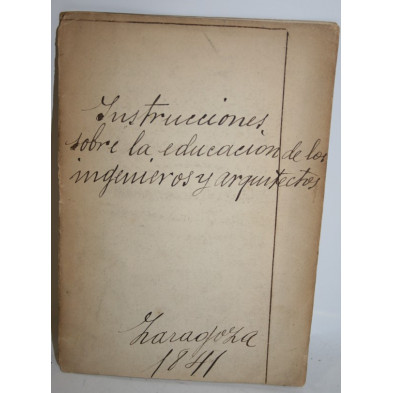 Instrucciones
sobre la educación de los
ingenieros y arquitectos
Zaragoza
1841